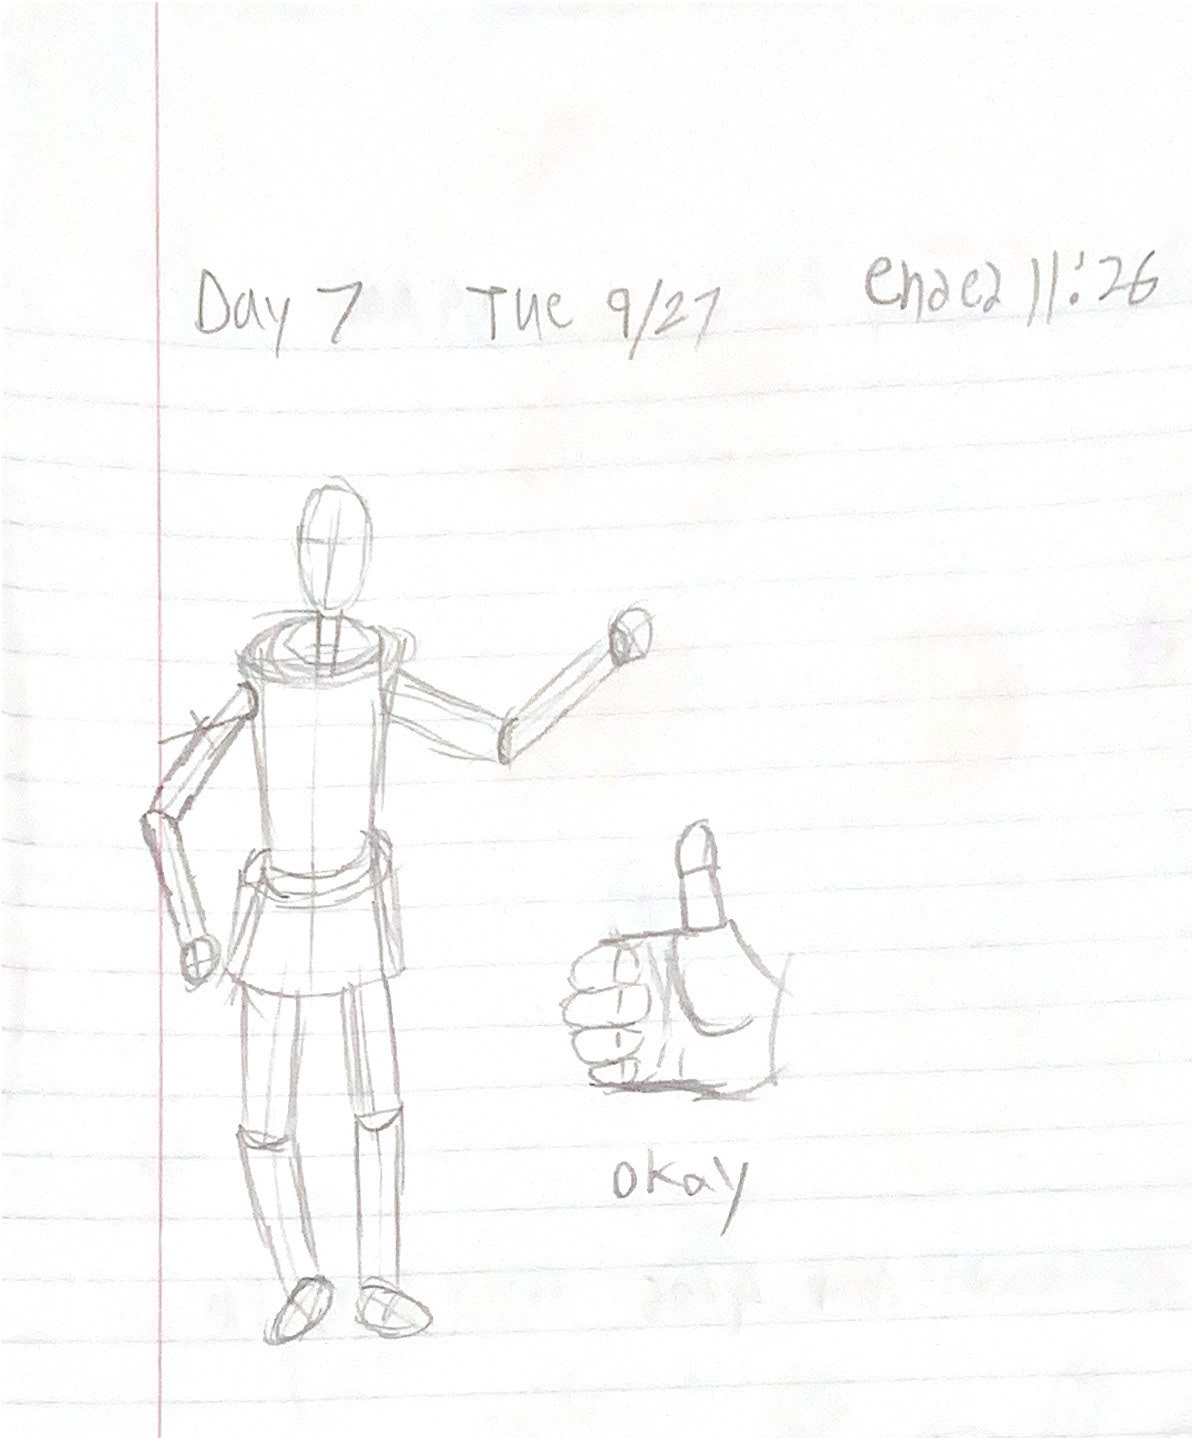 Day 7 Tue 9/27 ended 11:26
okay